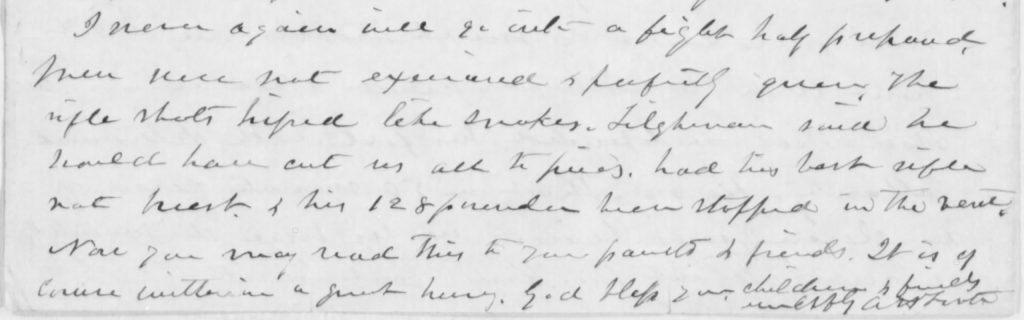 I never again will go into a fight half prepared.
Men were not exercised & perfectly green, the
rifle shots hissed like snakes. Tilghman said he
would have cut us all to pieces. had his best rifle
not burst. & his 128 pounder been stopped in the vent.
Now you may read this to your parents & friends. It is of
course written in a great hurry. God bless you children & friends
A H Foote